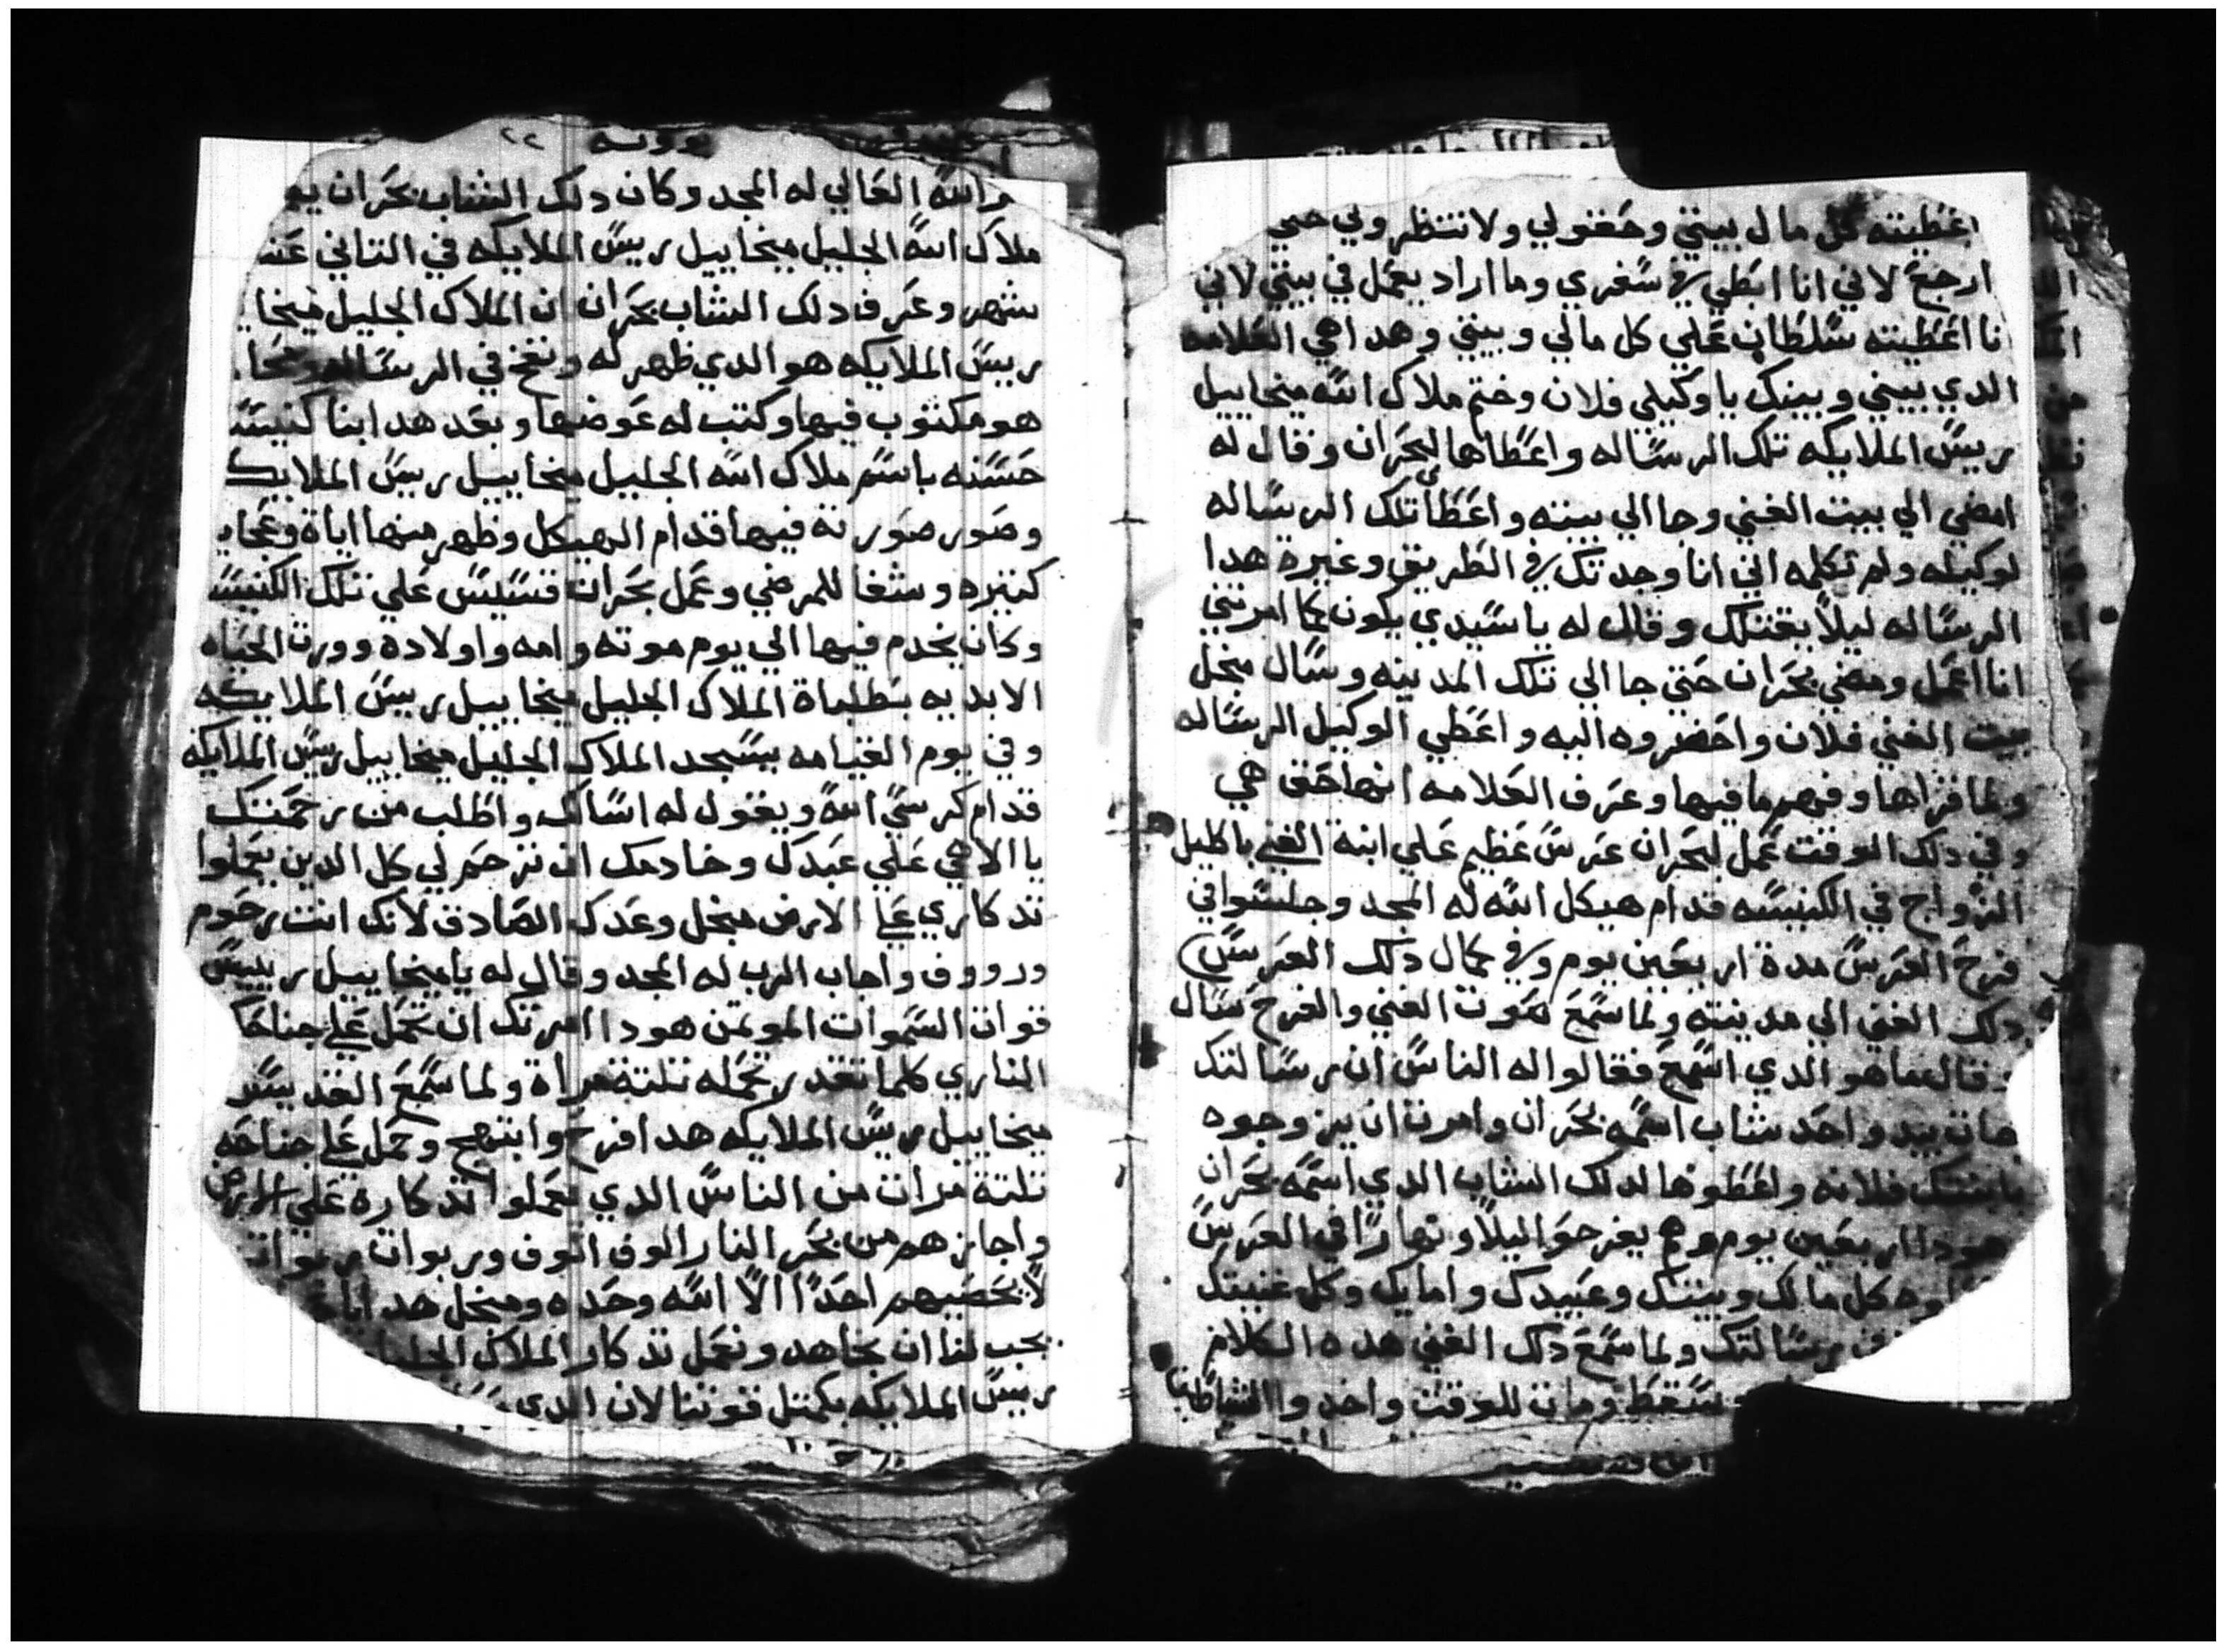 اعَطيته كل مال بيتي وحَقولي ولا تنتظروني حتي
ارجعَ لاني انا ابطي في سَفري وما اراد يعَمل في بيتي لاني
انا اعَطيته سَلطان عَلي كل مالي وبيتي وهدا هي العَلامه
الدي بيني وبينك يا وكيلي فلان وختم ملاك اللّه ميخاييل
رييسَ الملايكه تلك الرسَاله واعَطاها لبحَران وقال له
امضي الي بيت الغني وجا الي بيته واعَطي تلك الرسَاله
لوكيله ولم تكلمه اني انا وجدتك في الطريق وغيره هدا
الرسَاله ليلاً يقتلك وقال له يا سَيدي يكون كما امرتني
انا اعَمل ومضي بحَران حَتي جا الي تلك المدينه وسَال منجل
بيت الغني فلان واحَضروه اليه واعَطي الوكيل الرسَاله
ولما قراها وفهم ما فيها وعَرف العَلامه انها حَق هي
وفي دلك الوقت عَمل لبحَران عَرسَ عَظيم عَلي ابنة الغني باكليل
الزواج في الكنيسَه قدام هيكل اللّه له المجد وجلسَوا في
فرحَ العَرسَ مدة اربعَين يوم وفي كمال دلك العَرسَ
دلك الغني الي مدينته ولما سَمعَ صَوت الغني والفرحَ سَال
وقال ما هو الدي اسَمعَ فقالوا له الناسَ ان رسَالتك
هات بيد واحَد شاب اسَمه بحَران وامرت ان يزوجوه
بابنتك فلانه واعَطوها لدلك الشاب الدي اسَمه بحَران
هودا اربعَين يوم وهم يفرحَوا ليلاً ونهاراً في العَرسَ
كل مالك وبيتك وعَبيدك وامايك وكل غنيتك
رسَالتك ولما سَمعَ دلك الغني هده الكلام
سَقط ومات للوقت واخدوا الشياطين
واللّه العَالي له المجد وكان دلك الشاب بحَران
ملاك اللّه الجليل ميخاييل رييسَ الملايكه في التاني عَشر
شهر وعَرف دلك الشاب بحَران ان الملاك الجليل ميخا
رييسَ الملايكه هو الدي ظهر له ونفخ في الرسَاله ومحَا
هو مكتوب فيها وكتب له عَوضها وبعَد هدا ابنا كنيسَة
حَسَنه باسَم ملاك اللّه الجليل ميخاييل رييسَ الملايكـ
وصَور صَورته فيها قدام الهيكل وظهر منها اياة وعَجاب
كتيره وشفا للمرضي وعَمل بحَران قسَيسَ عَلي تلك الكنيسَة
وكان يخدم فيها الي يوم موته وامه واولاده وورت الحَياه
الابديه بطلباة الملاك الجليل ميخاييل رييسَ الملايكه
وفي يوم القيامه يسَجد الملاك الجليل ميخاييل رييسَ الملايكه
قدام كرسَي اللّه ويقول له اسَالك واطلب من رحَمتك
يا الاهي عَلي عَبدك وخادمك ان ترحَم لي كل الدين يعَملوا
تدكاري عَلي الارض منجل وعَدك الصَادق لانك انت رحَوم
ورووف واجاب الرب له المجد وقال له يا ميخاييل رييسَ
قوات السَموات الموتمن هودا امرتك ان تحَمل عَلي جناحَك
الناري كلما تقدر تحَمله تلتة مراة ولما سَمعَ القديسَ
ميخاييل رييسَ الملايكه هدا فرحَ وابتهج وحَمل عَلي جناحَه
تلتة مرات من الناسَ الدي يعَملوا تدكاره عَلي الارض
واجازهم من بحَر النار الوف الوف وربوات ربوات
لا يحَصَيهم احَداً الا اللّه وحَده ومنجل هدا
يجب لنا ان نجاهد ونعَمل تدكار الملاك الجليل
رييسَ الملايكه بكمتل قوتنا لان الدي